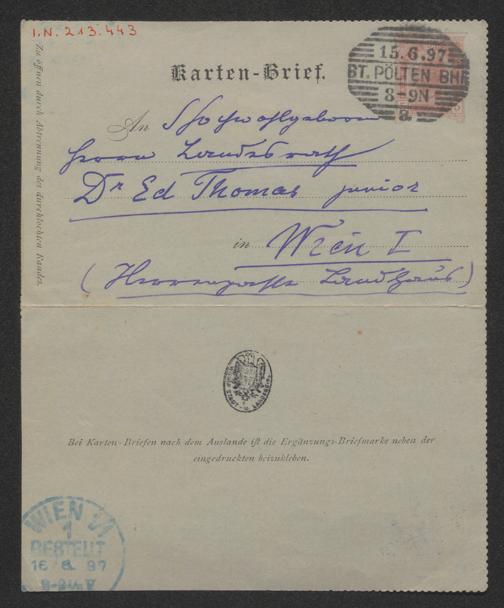 I.N. 213.443
Zu öffnen durch Abtrennung des durchlochten Randes.
Karten-Brief.
15.6.97
ST. PÖLTEN BHF
8-9N
a
An Hochwohlgeboren
Herrn Landesrath
Dr Ed Thomas junior
in Wien I
(Herrengasse Landhaus)
Bei Karten-Briefen nach dem Auslande ist die Ergänzungs-Briefmarke neben der
eingedruckten beizukleben.
WIEN 1/1
1
BESTELLT
16 6 97